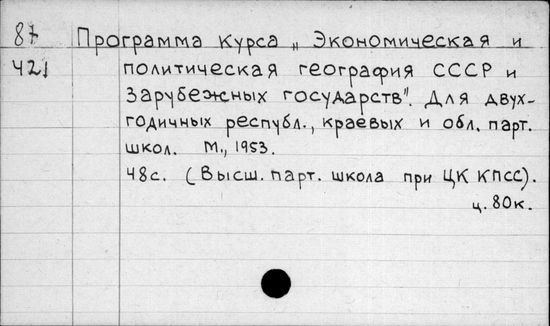 87 Программа курса „Экономическая и
421 политическая география СССР и
зарубежных государств". Для двух-
годичных республ., краевых и обл. парт.
школ. М., 1953.
48с. (Высш. парт. школа при ЦК КПСС).
ц. 80к.